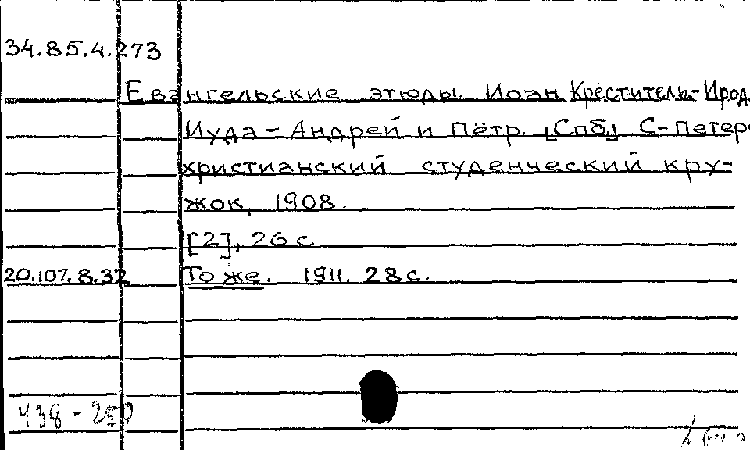 34.85.4.273
Евангельские этюды. Иоан Креститель-Ирод
Иуда-Андрей и Пётр. [Спб] С-Петерб
христианский студенческий кру-
жок, 1908.
[2], 26 с.
20.107.8.32 То же. 1911. 28 с.
438-250